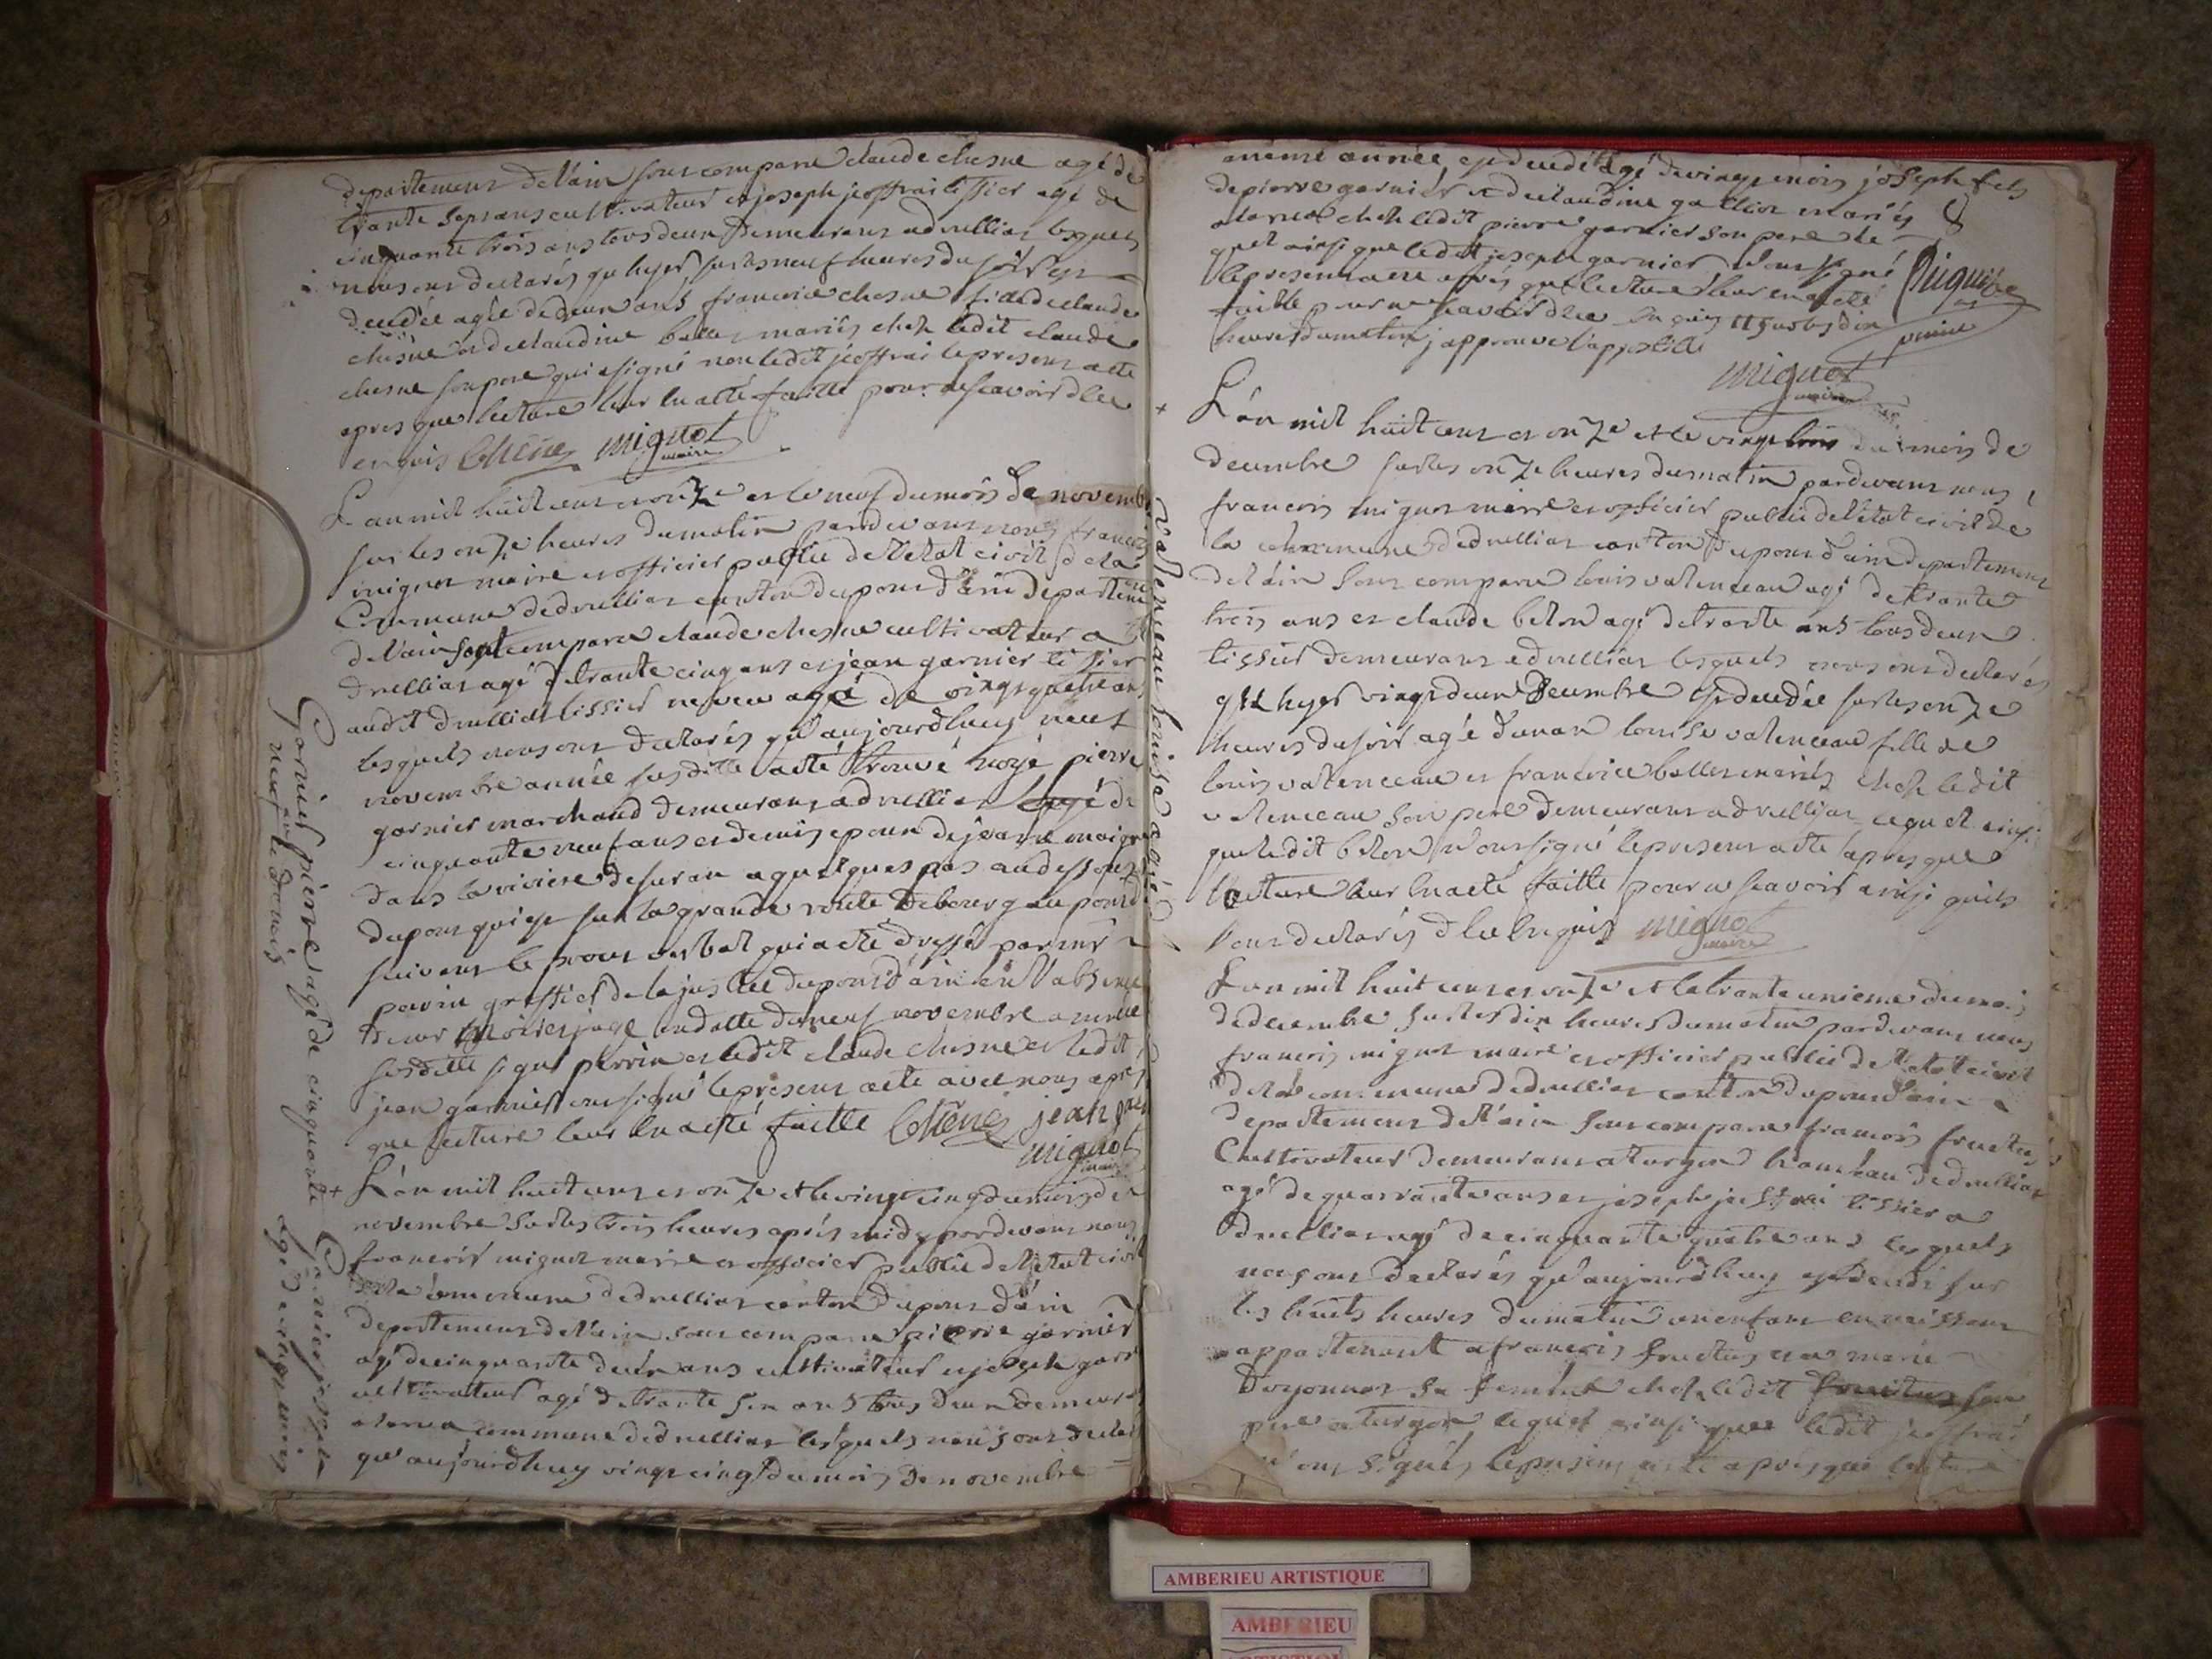 departement de l'ain sont comparu claude chesne agé de
trante sept ans cultivateur et joseph jeoffrai tissier agé de
cinquante trois ans tous deux demeurans a druillias lesquels
nous ont declarés qu hyer sur les neuf heures du soir est
decedée agée de deux ans francoise chesne fille de claude
chesne et de claudine ballet mariés chez ledit claude
chesne son pere qui a signé non ledit jeoffrai le present acte
apres que lecture leur en a été faitte pour ne scavoir de ce
enquis Chêne mignot
maire
L'an mil huit cent et onze et le neuf du mois de novemb
sur les onze heures du matin pardevant nous francois
mignot maire et officier public de l'etat civil de la
Commune de druillias canton du pont d'ain departeme
de l'ain sont comparu claude chesne cultivateur a
druillias agé de trante cinq ans et jean garnier tissier
audit druillias tissier neveu agé de vingt quatre ans
lesquels nous ont declarés qu'aujourdhuy neuf
novembre année susditte a été trouvé noyé pierre
garnier marchand demeurant a druillias agé de
cinquante neuf ans et demi epoux de jeanne
dans la riviere de suran a quelques pas au dessous
du pont qui est sur la grande route de bourg au pont d
suivant le proces verbal qui a été dressé par mr
perrin greffier de la justice du pont d'ain en l'absence
de mr juge en datte du neuf novembre année
susditte signé perrin et ledit claude chesne et ledit
jean garnier ont signé le present acte avec nous apres
que lecture leur en a été faitte Chêne jean gar
mignot
maire
+ L'an mil huit cent et onze et le vingt cinq du mois de
novembre sur les trois heures après midy pardevant nous
francois mignot maire et officier public de l'etat civil
de la commune de druillias canton du pont d'ain
departement de l'ain sont comparu pierre garnier
agé de cinquante deux ans cultivateur et joseph garn
cultivateur agé de trante six ans tous deux demeurans
a commune de druillias lesquels nous ont declar
qu'aujourdhuy vingt cinq du mois de novembre
Garnier pierre agé de cinquante
neuf ans et demis
Garnier joseph
agé de vingt mois
valenceau louise agée d
meme année est decedé agé de vingt mois joseph fils
de pierre garnier et de claudine mariés
chez ledit pierre garnier son pere le
quel ainsi que ledit joseph garnier n'ont signé
le present acte après que lecture leur en a été
faitte pour ne scavoir de ce enquis
heures du matin j'approuve l'apostille
mignot
maire
+ L'an mil huit cent et onze et le vingt trois du mois de
decembre sur les onze heures du matin pardevant nous
francois mignot maire et officier public de l'etat civil de
la commune de druillias canton du pont d'ain departement
de l'ain sont comparu louis valenceau agé de trante
trois ans et claude belon agé de trante ans tous deux
tissier demeurans a druillias lesquels nous ont declarés
qu hyer vingt deux decembre est decedée sur les onze
heures du soir agée d'un an louise valenceau fille de
louis valenceau et francoise ballet mariés chez ledit
valenceau son pere demeurans a druillias lequel ainsi
que ledit belon n'ont signé le present acte apres que
lecture leur en a été faitte pour ne scavoir ainsi quils
l'ont declarés de ce enquis mignot
maire
L'an mil huit cent et onze et le trante unieme du mois
de decembre sur les dix heures du matin pardevant nous
francois mignot maire et officier public de l'etat civil
de la commune de druillias canton du pont d'ain
departement de l'ain sont comparu francois fructus
Cultivateur demeurant a turgon hameau de druillias
agé de quarante ans et joseph jeoffrai tissier a
druillias agé de cinquante quatre ans lesquels
nous ont declarés qu'aujourdhuy est decedé sur
les huits heures du matin un enfant en naissant
appartenant a francois fructus et a marie
sa femme chez ledit fructus son
pere a turgon lequel ainsi que ledit jeoffrai
n'ont signés le present acte apres que lecture
AMBERIEU ARTISTIQUE
AMBERIEU
ARTISTIQUE